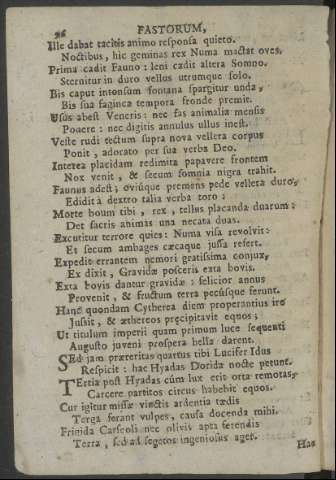 96 FASTORUM,
Ille dabat tacitis animo responsa quieto.
Noctibus, hic geminas rex Numa mactat oves.
Prima cadit Fauno: leni cadit altera Somno.
Sternitur in duro vellus utrumque solo.
Bis caput intonsum fontana spargitur unda,
Bis sua faginea tempora fronde premit.
Usus abest Veneris: nec fas animalia mensis
Ponere: nec digitis annulus ullus inest.
Veste rudi tectum supra nova vellera corpus
Ponit, adorato per sua verba Deo.
Interea placidam redimita papavere frontem
Nox venit, & secum somnia nigra trahit.
Faunus adest; oviúque premens pede vellera duro,
Edidit à dextro talia verba toro:
Morte boum tibi, rex, tellus placanda duarum:
Det sacris animas una necata duas.
Excutitur terrore quies: Numa visa revolvit:
Et secum ambages cæcaque jussa refert.
Expedit errantem nemori gratissima conjux,
Ex dixit, Gravidæ posceris exta bovis.
Exta bovis dantur gravidæ: felicior annus
Provenit, & fructum terra pecusque ferunt.
Hanc quondam Cytherea diem properantius ire
Jussit, & æthereos præcipitavit equos;
Ut titulum imperii quam primum luce sequenti
Augusto juveni prospera bella darent.
Sed jam præteritas quartus tibi Lucifer Idus
Respicit: hac Hyadas Dorida nocte petunt.
Tertia post Hyadas cúm lux erit orta remotas,
Carcere partitos circus habebit equos.
Cur igitur missæ vinctis ardentia tædis
Terga ferant vulpes, causa docenda mihi.
Frigida Carseoli nec olivis apta ferendis
Terra, sed ad segetes ingeniosus ager.
Hac